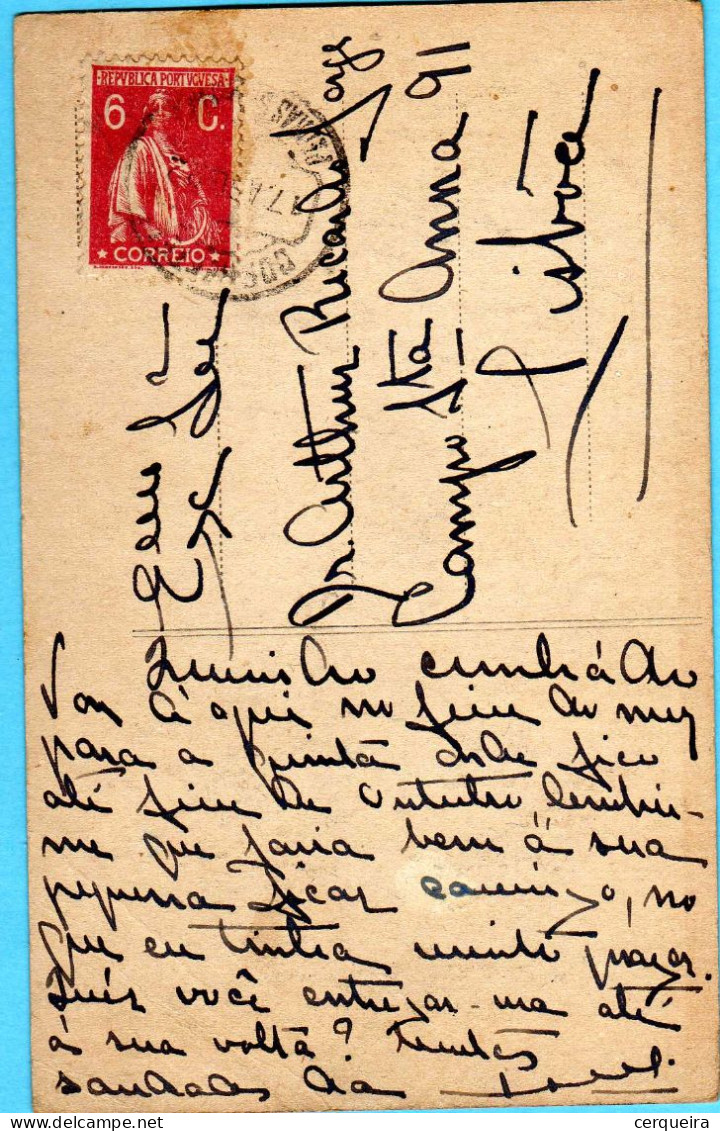 REPVBLICA PORTVGVESA
6 C.
CORREIO
Exmo Snr
Dr. Arthur Ricardo Jorge
Campo Sta Anna 91
Lisbôa
cunhádo
Vou d'aqui no fim do mez
para a quinta onde fico
até fim de Outubro, lembro-
me que faria bem á sua
pequena ficar comigo, no
que eu tinha muito prazer.
Quér você entregar-ma até
á sua volta? Muitas
saudades da
cerqueira